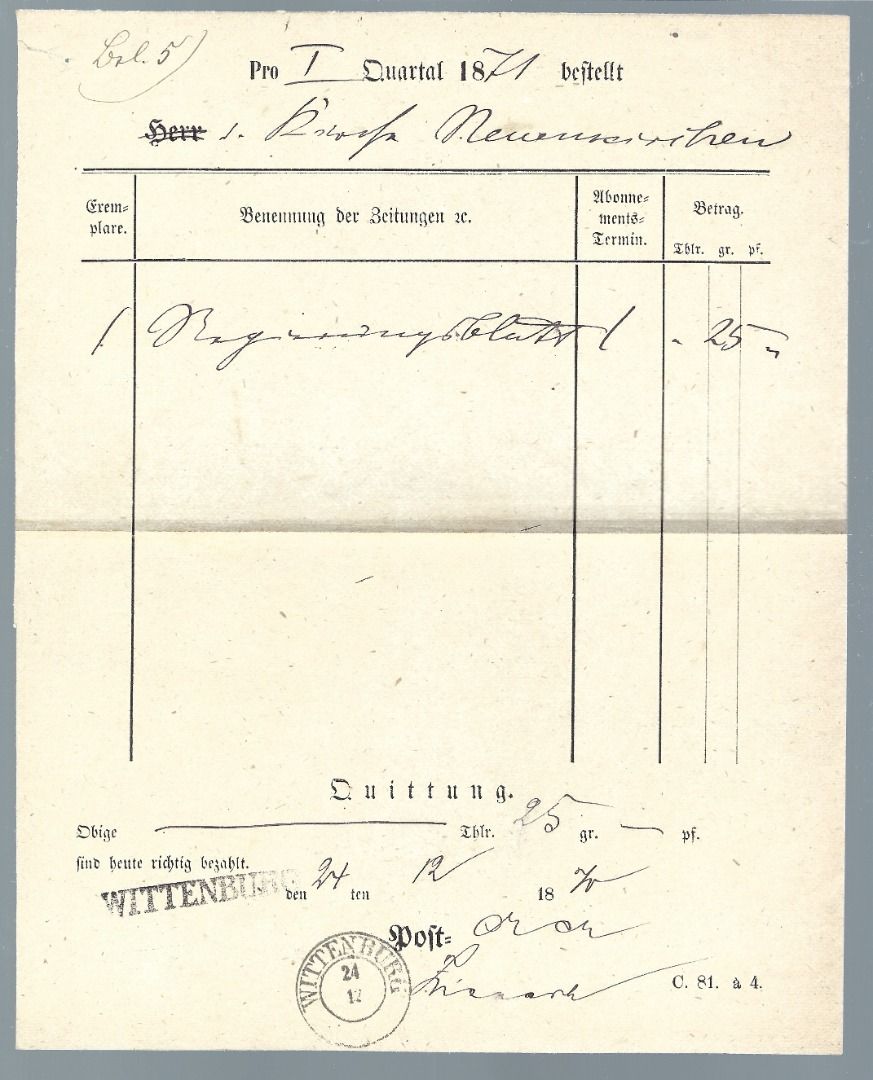 Bel. 5)
Pro I Quartal 1871 bestellt
Herr d. Kirche Neuenkirchen
Exem-
plare.
Benennung der Zeitungen ꝛc.
Abonne-
ments-
Termin.
Betrag.
Thlr. gr. pf.
1 Regierungsblatt 1 " 25 "
Quittung.
Obige — Thlr. 25 gr. — pf.
sind heute richtig bezahlt.
WITTENBURG den 24 ten 12 1870
Post-
WITTENBURG
24
12
C. 81. a 4.